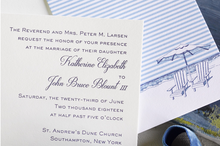 The Reverend and Mrs. Peter M. Larsen
request the honor of your presence
at the marriage of their daughter
Katharine Elizabeth
to
John Bruce Blount III
Saturday, the twenty-third of June
Two thousand eighteen
at half past five o'clock
St. Andrew's Dune Church
Southampton, New York